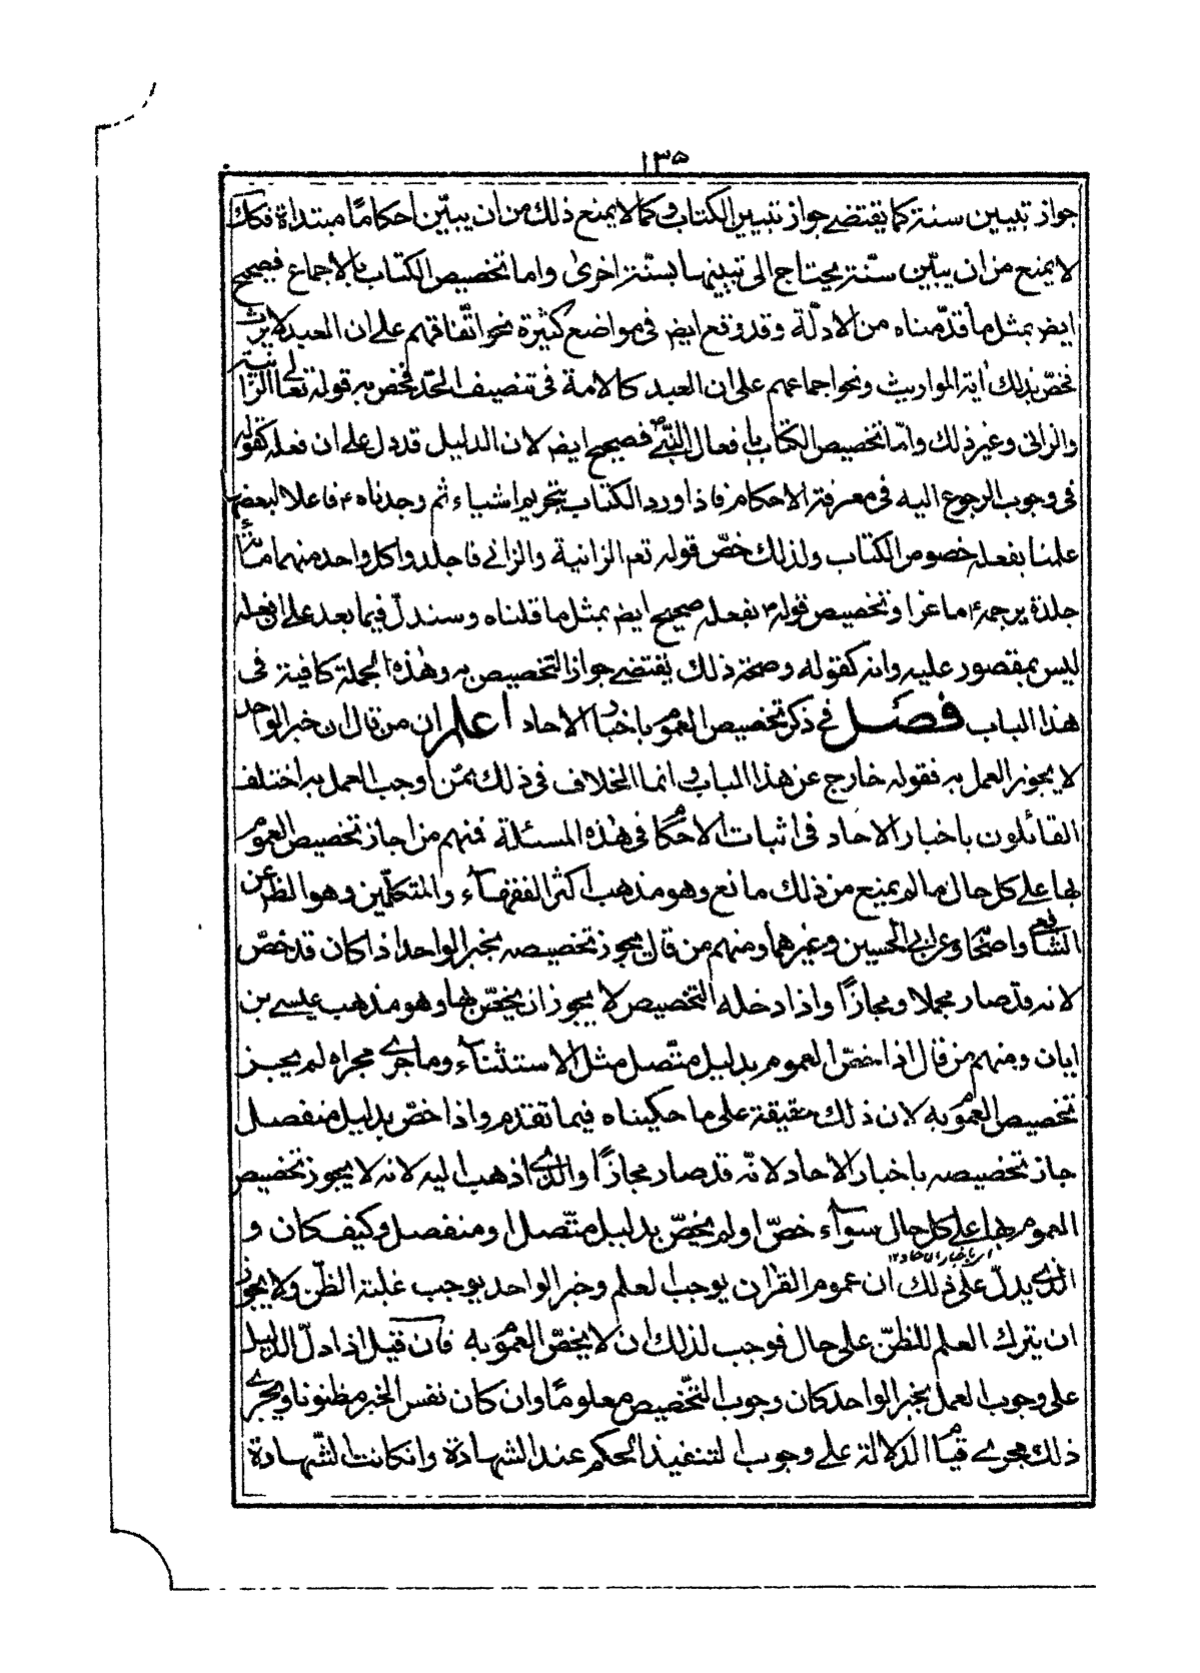 ١٣٥
جواز تبيين سنة كما يقتضے جواز تبيين الكتاب وكما لا يمنع ذلك من ان يبيّن احكامًا مبتداة فكك
لا يمنع من ان يبيّن سنّة يحتاج الى تبيينها بسنّة اخرىٰ واما تخصيص الكتاب بالاجماع فصحيح
ايضر بمثل ما قدّمناه من الادلّة وقد وقع ايضر فى مواضع كثيرة نحو اتّفاقهم علے ان العبد لا يرث
فخصّ بذلك أية المواريث ونحو اجماعهم على ان العبد كالامة فى تنصيف الحدّ فخص به قوله تعالے الزانية
والزانى وغير ذلك وامّا تخصيص الكتاب بافعال النبّے ص فصحيح ايضر لان الدليل قد دل علے ان فعله كقوله
فى وجوب الرجوع اليه فى معرفة الاحكام فاذا ورد الكتاب بتحريم اشياء ثم وجدناه ء فاعلا لبعضها
علمنا بفعله خصوص الكتاب ولذلك خصّ قوله تعم الزانية والزانے فاجلدوا كل واحد منهما مائة
جلدة برجمه ء ماعزا وتخصيص قوله ء بفعله صحيح ايضر بمثل ما قلناه وسندلّ فيما بعد على ان فعله
ليس بمقصور عليه وانه كقوله وصحة ذلك يقتضے جواز التخصيص به وهٰذه الجملة كافية فى
هذا الباب فصل فے ذكر تخصيص العموم باخبار الاحاد اعلم ان من قال ان خبر الواحد
لا يجوز العمل به فقوله خارج عن هذا الباب وانما الخلاف فى ذلك بمّن اوجب العمل به اختلف
القائلون باخبار الاحاد فى اثبات الاحكام فى هٰذه المسئلة فمنهم من اجاز تخصيص العموم
بها علے كل حال ما لم يمنع من ذلك مانع وهو مذهب اكثر الفقهاء والمتكلّمين وهو الظر عن
الشافعے واصحابه وعن ابى الحسين وغيرهما ومنهم من قال يجوز تخصيصه بخبر الواحد اذا كان قد خصّ
لانه قد صار مجملا ومجازًا واذا دخله التخصيص لا يجوز ان يخصّ بها وهو مذهب عيسے بن
ابان ومنهم من قال اذا خصّ العموم بدليل متّصل مثل الاستثناء وما جرے مجراه لم يجز
تخصيص العموم به لان ذلك حقيقة على ما حكيناه فيما تقدم واذا خصّ بدليل منفصل
جاز تخصيصه باخبار الاحاد لانّه قد صار مجازًا والّذے اذهب اليه لانه لا يجوز تخصيص
العموم بها علے كل حال سواء خصّ او لم يخصّ بدليل متّصل او منفصل وكيف كان و
اى باخبار الاحاد ١٢
الّذے يدلّ على ذلك ان عموم القرٰان يوجب العلم وخبر الواحد يوجب غلبة الظّن ولا يجوز
ان يترك العلم للظنّ على حال فوجب لذلك ان لا يخصّ العموم به فان قيل اذا دلّ الدليل
على وجوب العمل بخبر الواحد كان وجوب التّخصيص معلومًا وان كان نفس الخبر مظنونا ويجرے
ذلك مجرے قيام الدّلالة علے وجوب التنفيذ الحكم عند الشهادة وانكانت الشّهادة